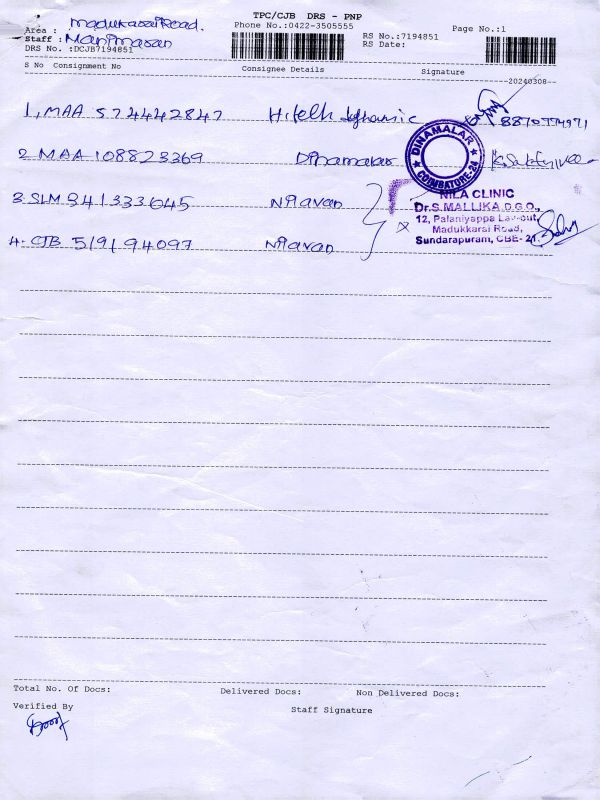 TPC/CJB DRS - PNP
Phone No.:0422-3505555
Area : Madukarai Road.
Staff : Manimaran
DRS No. :DCJB7194851
RS No.:7194851
RS Date:
Page No.:1
S No Consignment No Consignee Details Signature
20240308
1, MAA 574442847
2 MAA 108823369 Dinamalar
3 SLM 941333645
4. CJB 519194097
DINAMALAR
COIMBATORE-24
NILA CLINIC
Dr.S.MALLIKA.D.G.O.,
12, Palaniyappa Lay-out,
Madukkarai Road,
Sundarapuram, CBE-
Total No. Of Docs: Delivered Docs: Non Delivered Docs:
Verified By
Staff Signature